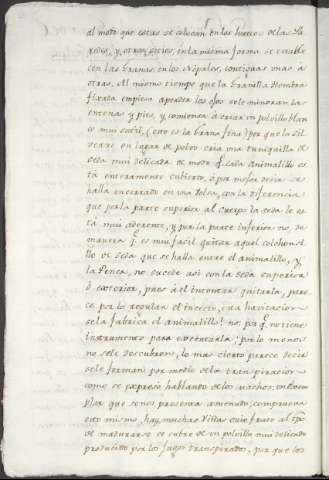 al modo que estas se colocan en los huecos de las Pa
redes, y otros sitios, en la misma forma se establec
cen las Granas en los Nopales, contiguas unas á
otras. Al mismo tiempo que la Granilla Hembra
fixada empieza aperder los ojos se le minoran las
entenas y pies, y comienza á criar un polvillo blan
co mui sutil, (esto es la Grana fina) porque la Sil
vestre en lugar de polvo cria una tuniquilla de
seda mui delicada de modo q.e cada Animalillo es
tá enteramente cubierto, ó por mejor decir se
halla encerrado en una bolsa, con la diferencia
que por la parte superior al cuerpo la seda le es
tá mui aderente, y por la parte inferior no, de
manera q.e es mui facil quitar aquel colchonsi
llo de seda que se halla entre el animalillo, y
la Penca, no sucede asi con la seda superior
ó exterior, pues á el intentar quitarla, pere
ce por lo regular el insecto, esta havitacion
se la fabrica el animalillo? no, por q.e no tiene
instrumento para executarla, por lo menos
no se le descubren, lo mas cierto parece decir
se le forman por medio de la transpiracion
como se expresó hablando de los machos; un exem
plar que se nos presenta amenudo, comprueva
esto mismo, hay muchas cuio fruto al tpo
de madurarse se cubre de un polvillo mui delicado
producido por los jugos transpirados, por que los